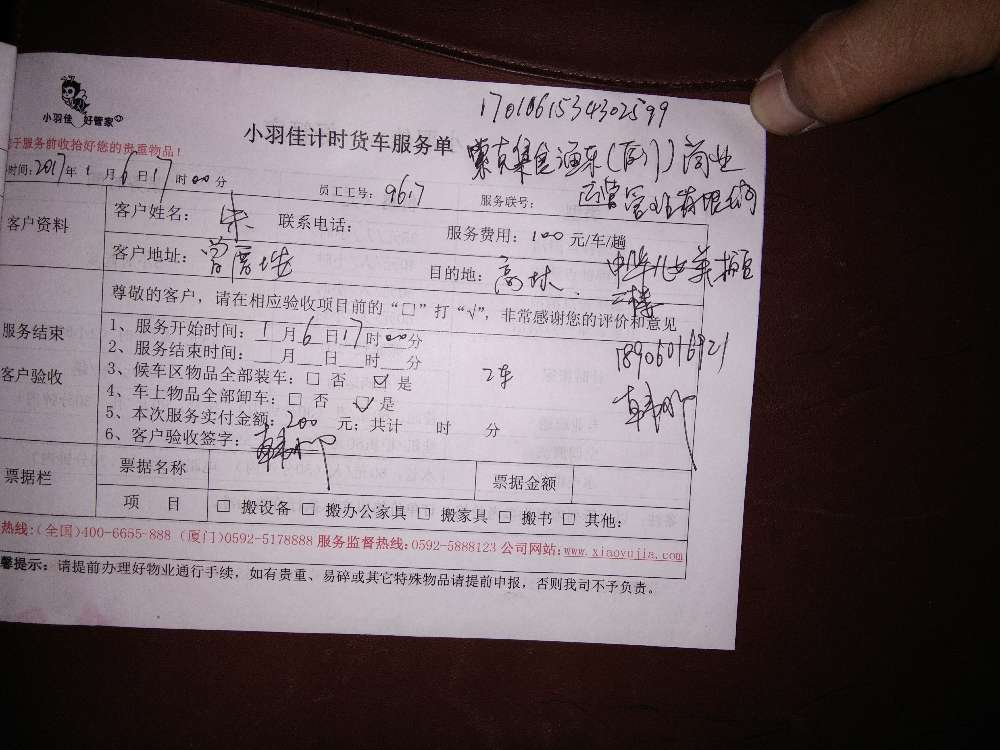 1701061534302599
小羽佳 好管家
小羽佳计时货车服务单
于服务前收拾好您的贵重物品!
集团渔东(厦门)商业
运营管理有限公司
时间:2017年1月6日17时00分 员工工号:9617 服务联号:
客户资料 客户姓名:朱 联系电话: 服务费用:100元/车/趟
客户地址:曾厝垵 目的地:高林 中华儿女美术馆
二楼
尊敬的客户,请在相应验收项目前的“□”打“√”,非常感谢您的评价和意见
服务结束
客户验收
1、服务开始时间:1月6日17时00分
2、服务结束时间:__月__日__时__分
18906016921
3、候车区物品全部装车:□ 否 ☑ 是 2车
4、车上物品全部卸车:□ 否 ☑ 是
5、本次服务实付金额:200元;共计 时 分
6、客户验收签字:
票据栏 票据名称 票据金额
项 目 □ 搬设备 □ 搬办公家具 □ 搬家具 □ 搬书 □ 其他:
热线:(全国)400-6655-888 (厦门)0592-5178888 服务监督热线:0592-5888123 公司网站:www.xiaoyujia.com
馨提示:请提前办理好物业通行手续,如有贵重、易碎或其它特殊物品请提前申报,否则我司不予负责。